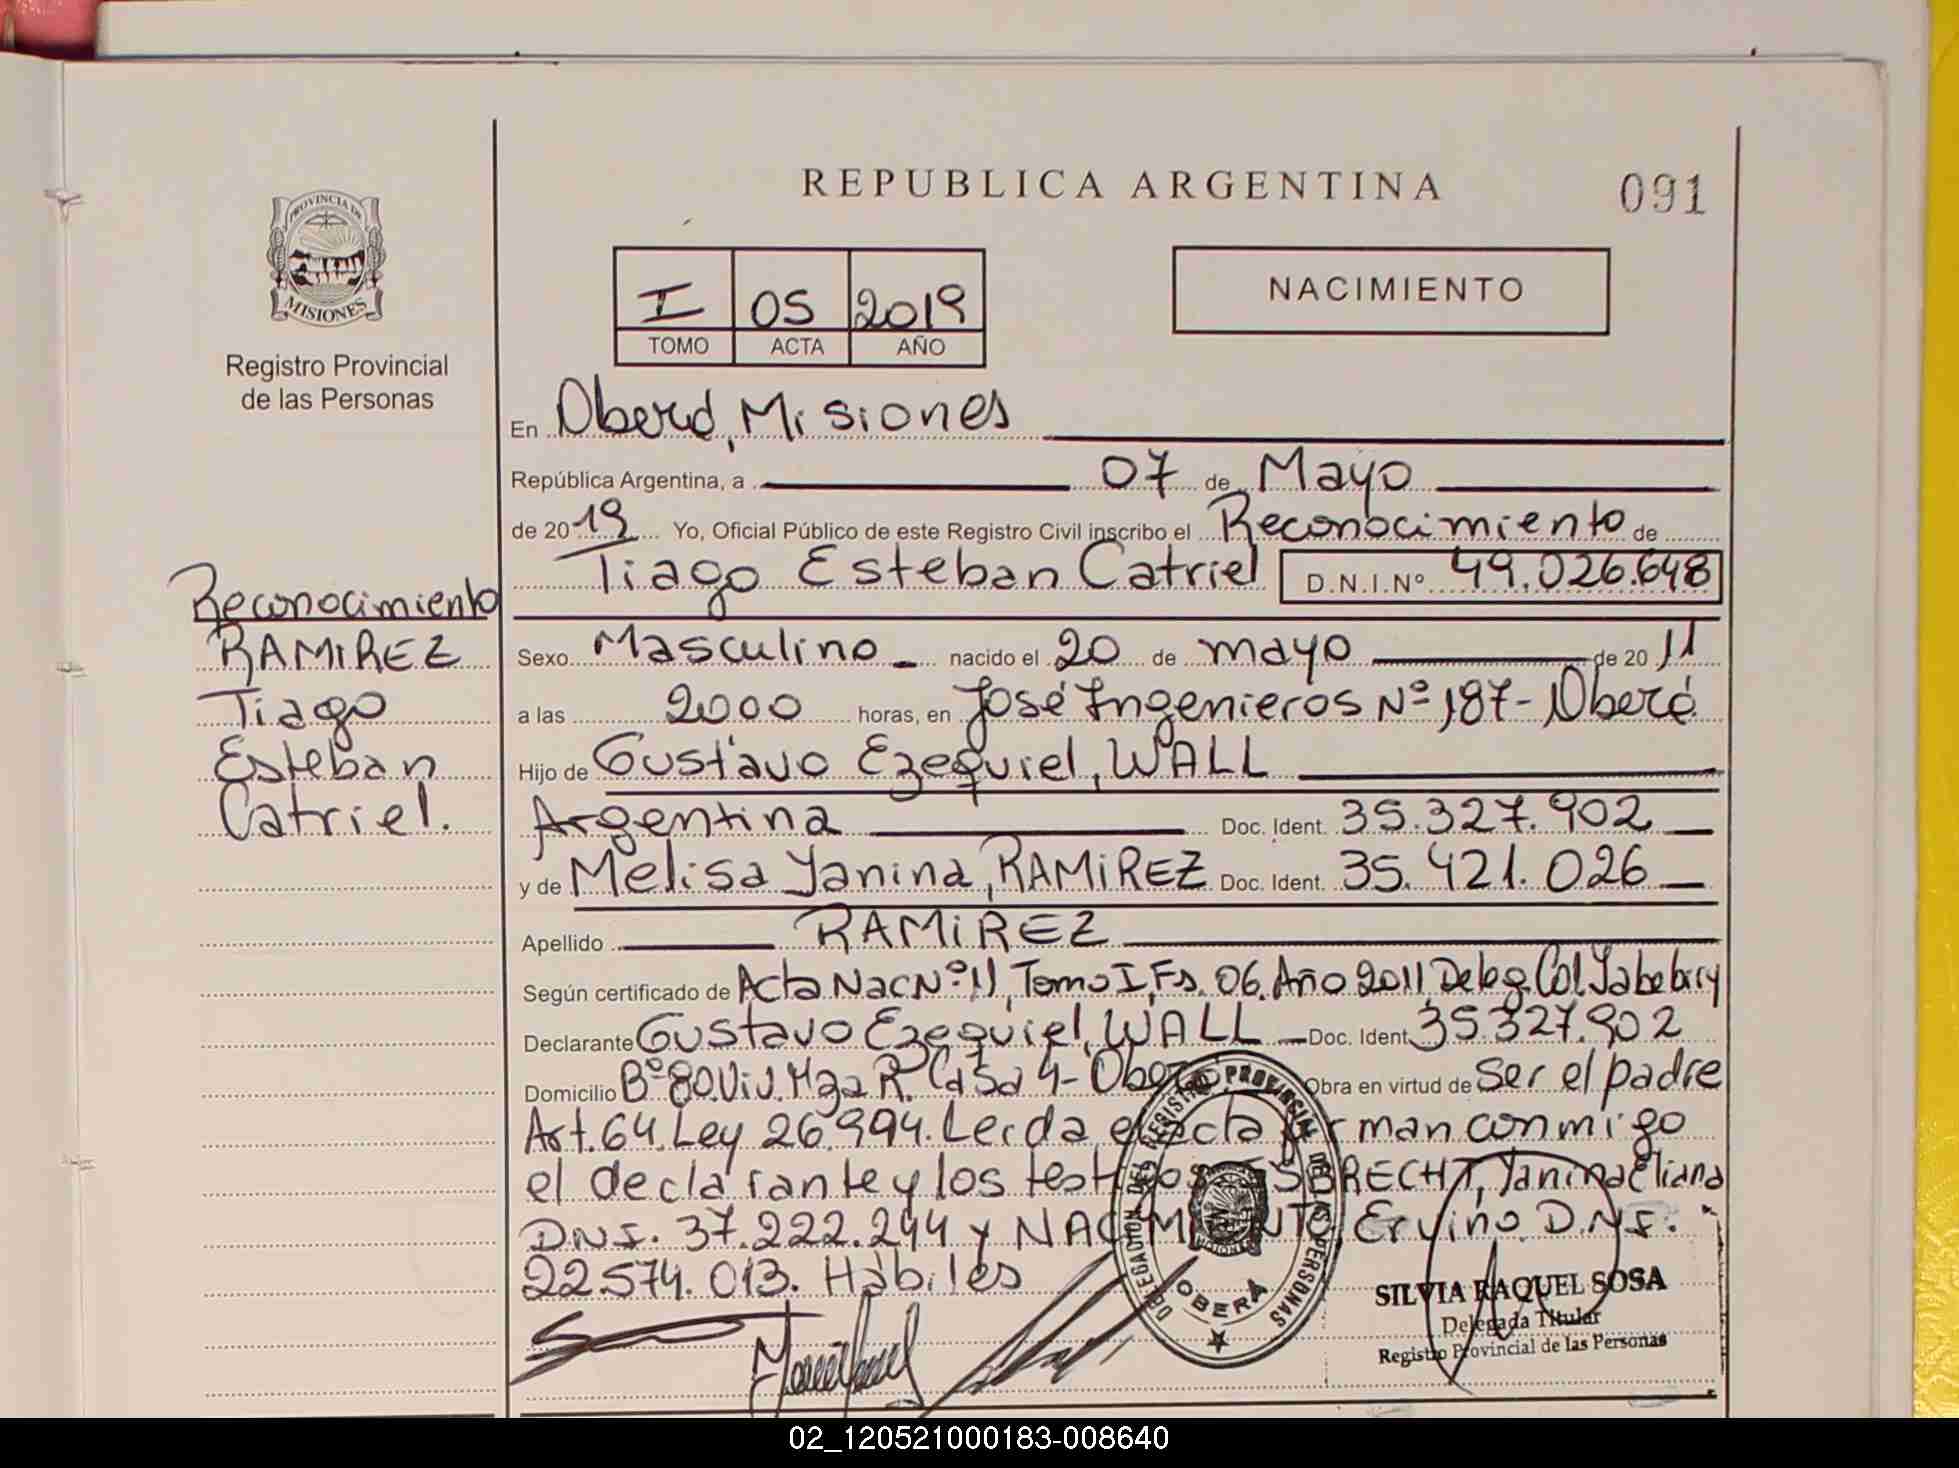 REPUBLICA ARGENTINA
091
PROVINCIA DE
MISIONES
Registro Provincial
de las Personas
I 05 2019
TOMO ACTA AÑO
NACIMIENTO
En Oberá, Misiones
República Argentina, a 07 de Mayo
de 2019 Yo, Oficial Público de este Registro Civil inscribo el Reconocimiento de
Tiago Esteban Catriel D.N.I.Nº 49.026.648
Reconocimiento
RAMIREZ
Tiago
Esteban
Catriel.
Sexo Masculino nacido el 20 de mayo de 2011
a las 2000 horas, en José Ingenieros Nº 187 - Oberá
Hijo de Gustavo Ezequiel, WALL
Argentina Doc. Ident. 35.327.902
y de Melisa Yanina, RAMIREZ Doc. Ident. 35.421.026
Apellido RAMIREZ
Según certificado de Acta Nac Nº 11, Tomo I, Fs. 06. Año 2011, Deleg. Col. Yabebiry
Declarante Gustavo Ezequiel, WALL Doc. Ident. 35.327.902
Domicilio Bº 80 Viv. Mza R. Casa 4 - Oberá Obra en virtud de Ser el padre
Art. 64. Ley 26.994. Leida el acta firman conmigo
el declarante y los testigos Yanina Eliana
DNI. 37.222.244 y NACIMIENTO, Ervino. D.N.I.
22.574.013. Hábiles
DELEGACION DEL REGISTRO PROVINCIAL DE LAS PERSONAS
OBERA
SILVIA RAQUEL SOSA
Delegada Titular
Registro Provincial de las Personas
02_120521000183-008640